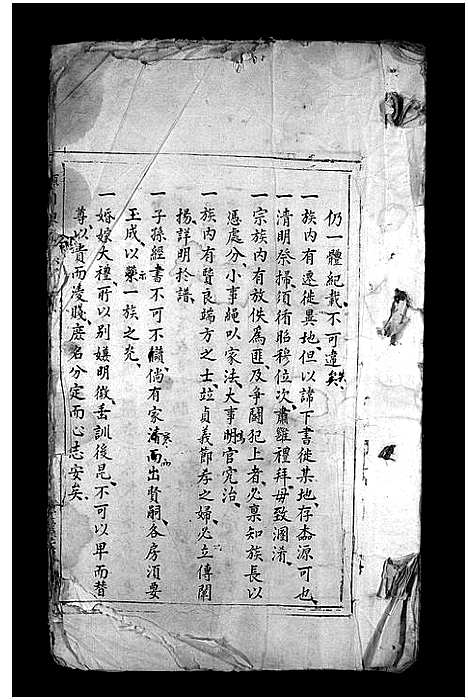 仍一體紀載不可違矣
一族內有遷徙異地但以諦下書徙某地存森源可也
一清明祭掃須循昭穆位次肅雝禮拜毋致溷淆
一宗族內有放佚為匪及爭鬪犯上者必禀知族長以
慿處分小事繩以家法大事明官究治
一族內有賢良端方之士竝貞義節孝之婦必立傳闡
揚詳明於譜
一子孫經書不可不讀倘有家清而出賢嗣各房須要
玉成以示一族之光
一婚嫁大禮所以別嫌明徵垂訓後昆不可以卑而替
尊以貴而凌賤庶名分定而心志安矣